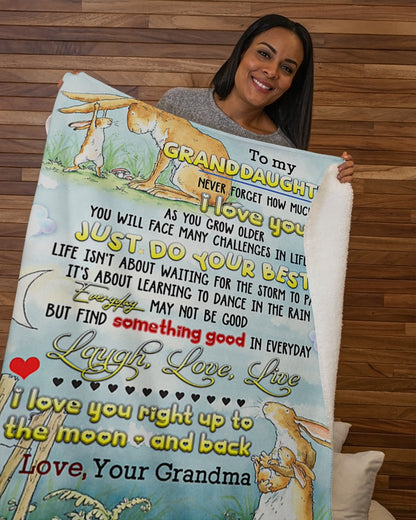 To my
GRANDDAUGHT
NEVER FORGET HOW MUC
i love you
AS YOU GROW OLDER
YOU WILL FACE MANY CHALLENGES IN LIF
JUST DO YOUR BEST
LIFE ISN'T ABOUT WAITING FOR THE STORM TO PA
IT'S ABOUT LEARNING TO DANCE IN THE RAIN
Everyday MAY NOT BE GOOD
BUT FIND something good IN EVERYDAY
Laugh, Love, Live
i love you right up to
the moon and back
Love, Your Grandma